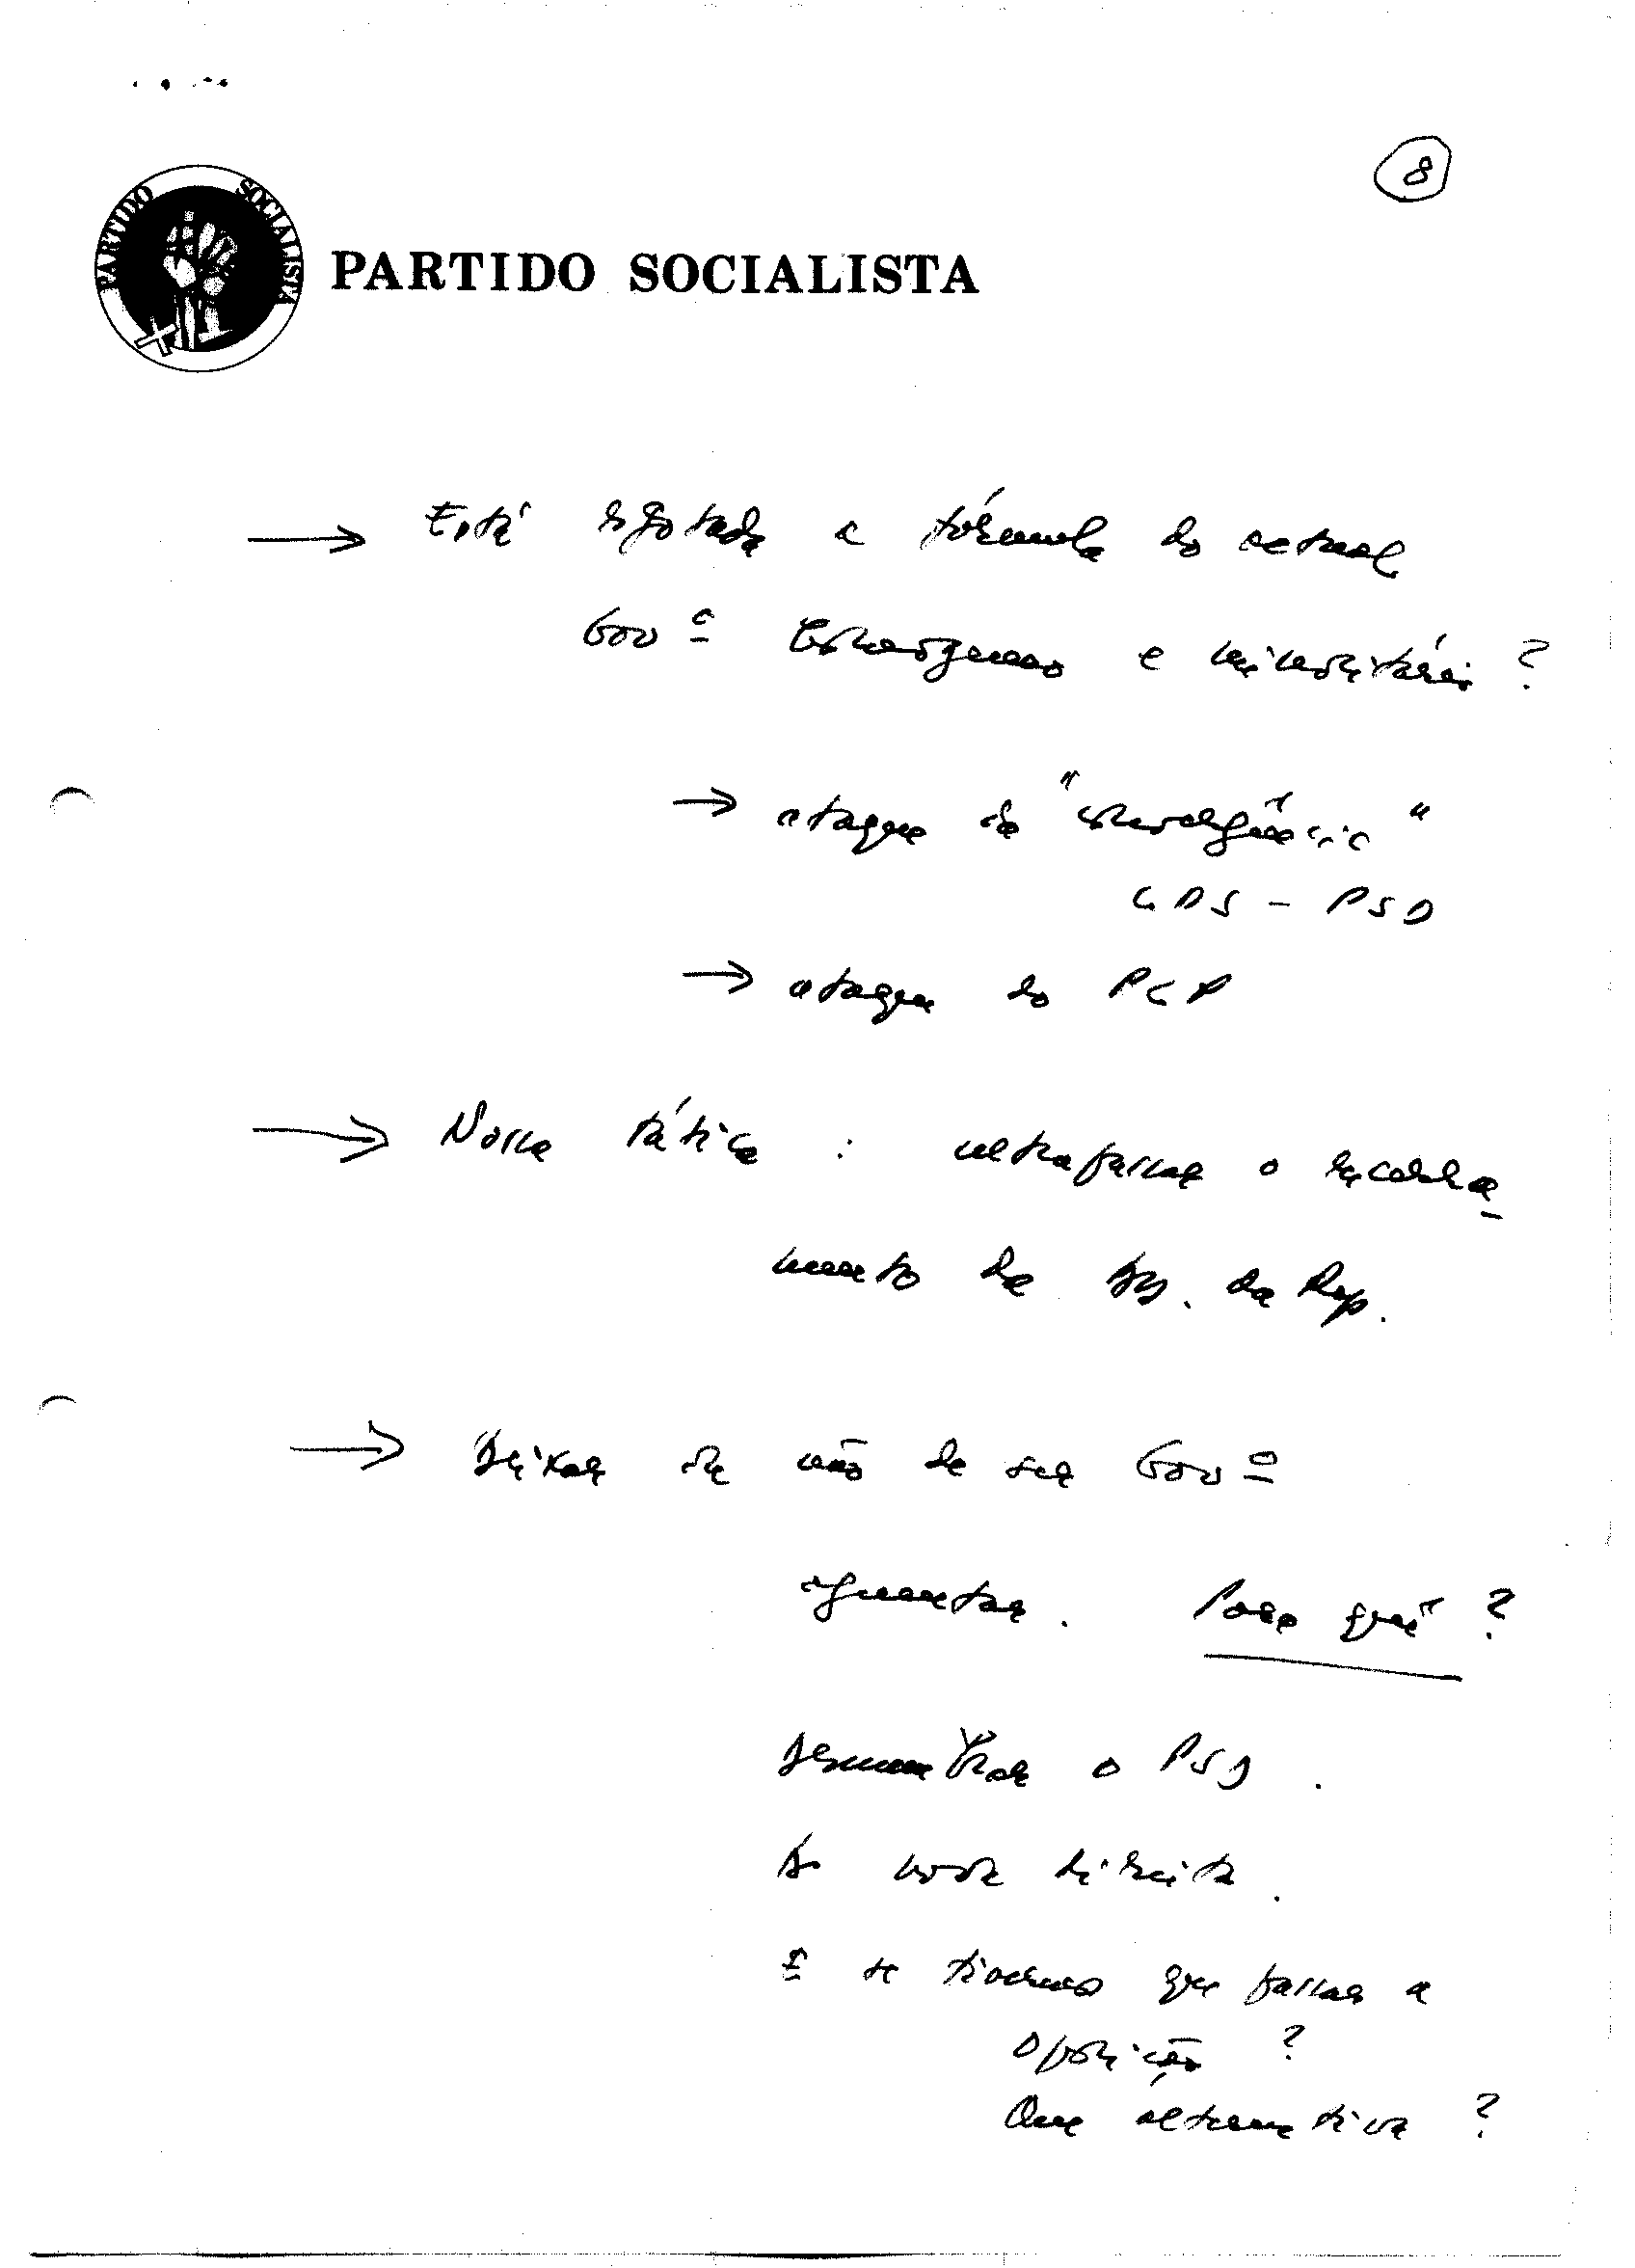 8
PARTIDO SOCIALISTA
PARTIDO SOCIALISTA
→ Está esgotada a fórmula do actual
Govº homogéneo e minoritário ?
→ ataque da "convergência"
CDS - PSD
→ ataque do PCP
→ Nossa tática : ultrapassar o encerra-
mento da Ass. da Rep.
→ Deixar ou não de ser Govº
aguentar. Para quê ?
Desmontar o PSD.
A nova direita.
E se tivermos que passar à
oposição ?
Que alternativa ?